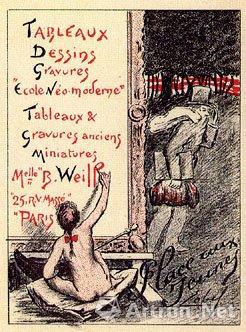 TABLEAUX
DESSINS
GRAVURES
"ECOLE NÉO-MODERNE"
TABLEAUX &
GRAVURES ANCIENS
MINIATURES
Melle B. WEILL
"25, R. V. MASSÉ"
"PARIS"
Place aux
Jeunes
Artron.Net